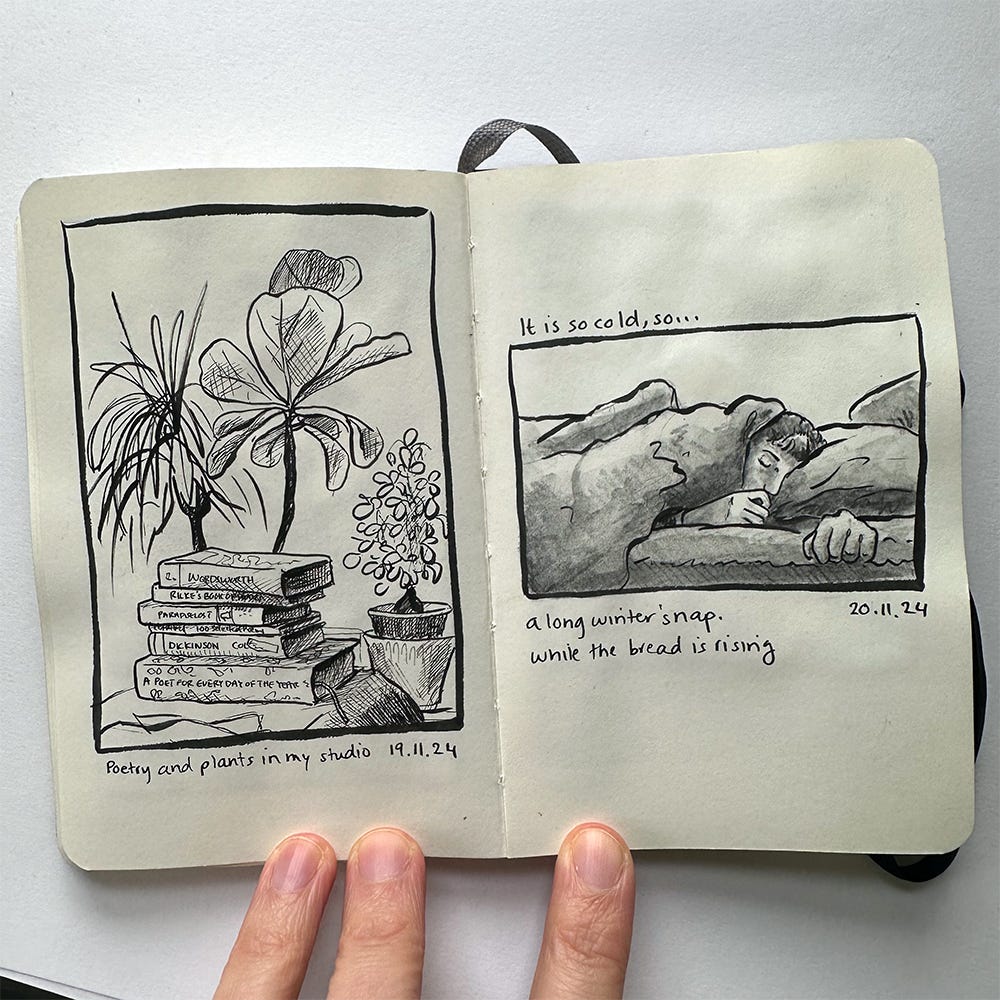 WORDSWORTH
RILKE'S BOOK OF
PARADISE LOST
100 Selected Poems
DICKINSON
A POET FOR EVERY DAY OF THE YEAR
Poetry and plants in my studio 19.11.24
It is so cold, so...
20.11.24
a long winter's nap.
while the bread is rising